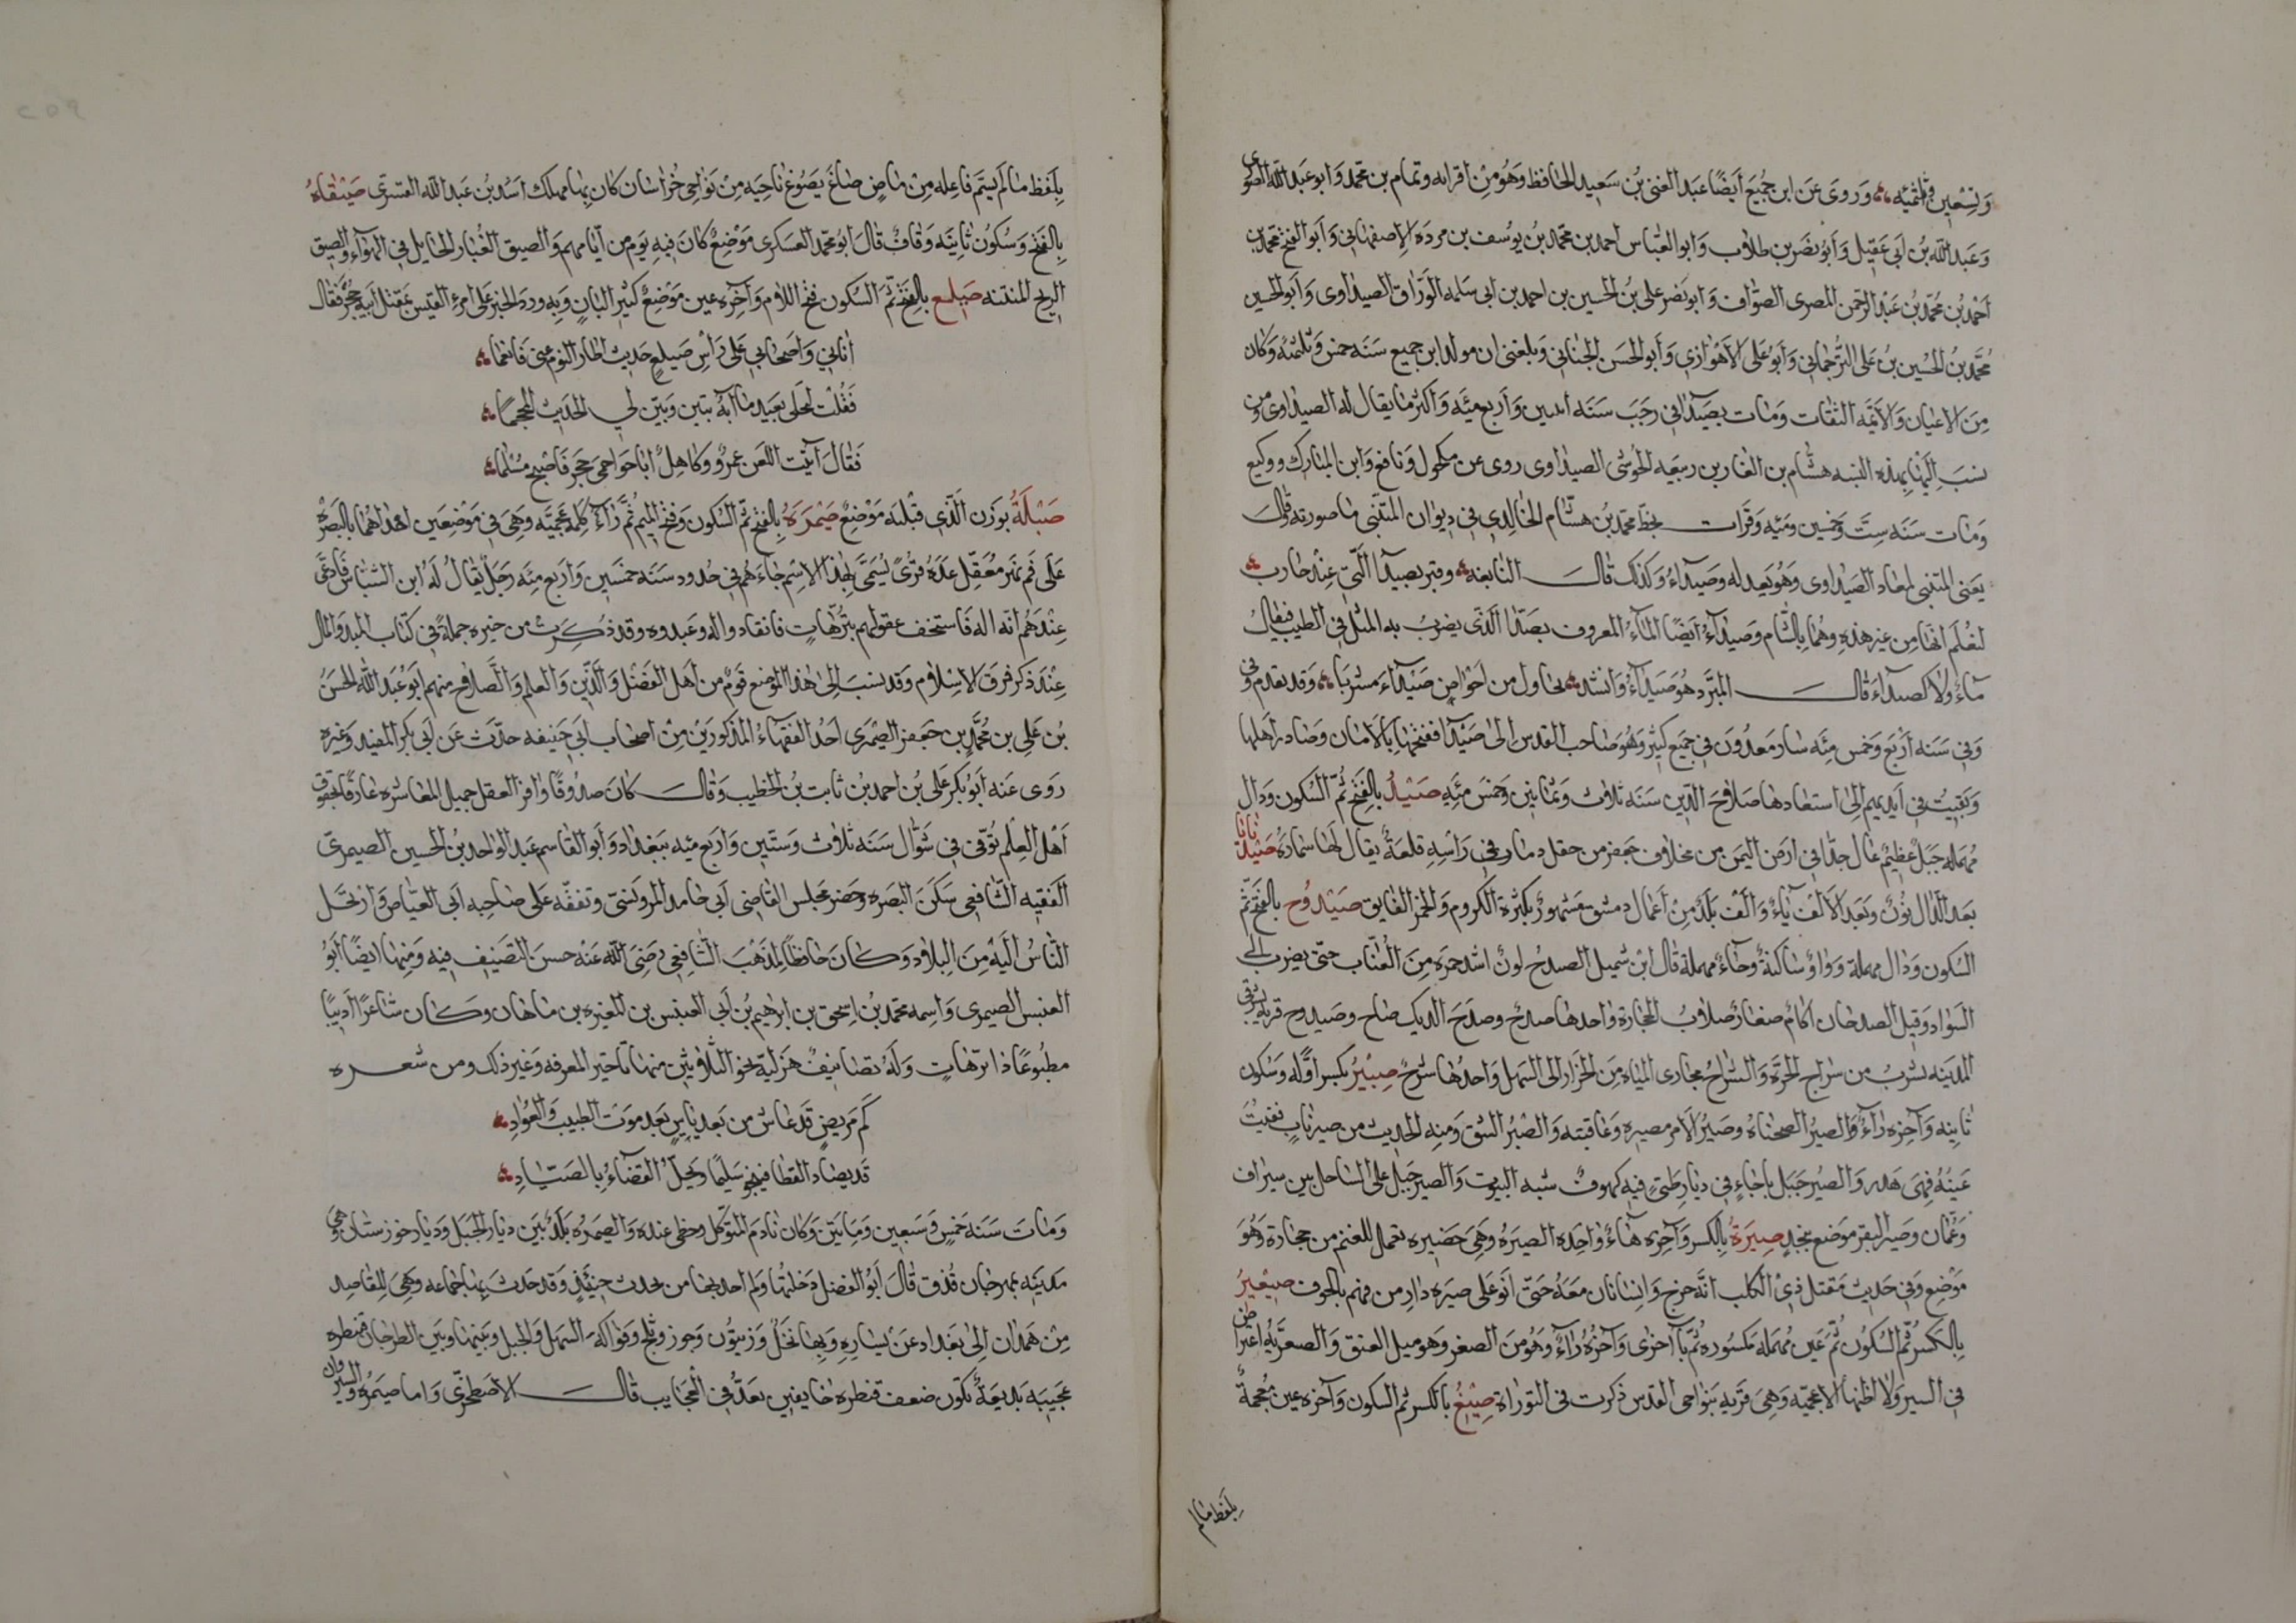 وتسعين وثلثمئه وروى عن ابن جميع أيضا عبد الغنى بن سعيد الحافظ وهو من اقرانه وتمام بن محمد وابو عبد الله الصورى
وعبد الله بن ابى عقيل وأبو نصر بن طلاب وابو العباس احمد بن محمد بن يوسف بن مرده الاصفهانى وأبو الفتح محمد بن
أحمد بن محمد بن عبد الرحمن المصرى الصواف وابو نصر على بن الحسين بن احمد بن ابى سلمه الوراق الصيداوى وأبو الحسين
محمد بن الحسين بن على الترجمانى وأبو على الأهوازى وأبو الحسن الجنانى وبلغنى ان مولد ابن جميع سنه خمس وثلثمئه وكان
من الاعيان والأئمه الثقات ومات بصيدا فى رجب سنه اثنين وأربع مئه وأكثر ما يقال له الصيداوى ومن
نسب إليها بهذه النسبه هشام بن الغاز بن ربيعه الجوشى الصيداوى روى عن مكحول ونافع وابن المبارك ووكيع
ومات سنه ست وخمسين ومئه وقرات بخط محمد بن هشام الخالدى فى ديوان المتنبى ما صورته وقال
يعنى المتنبى لمعاد الصيداوى وهو يعدله وصيداء وكذلك قال النابغه وقبر بصيدا التى عند حارب
لنعلم انها من غير هذه وهما بالشام وصيداء أيضا الماء المعروف بصدا الذى يضرب به المثل فى الطيب فيقال
ماء ولا كصداء قال المبرد هو صيداء وانشد يحاول من احواض صيداء مشربا وقد تقدم وفى
وفى سنه أربع وخمس مئه سار معدون فى جميع كثير وهو صاحب القدس الى صيدا ففتحها بالامان وصادر اهلها
وبقيت فى أيديهم إلى استعادها صلاح الدين سنه ثلاث وثمانين وخمس مئه صيد بالفتح ثم السكون ودال
مهمله جبل عظيم عال جدا فى ارض اليمن من مخلاف جعفر من حقل دمار فى راسه قلعة يقال لها سماره صيدنايا
بعد الدال نون وبعد الالف ياء والف بلد من أعمال دمشق مشهور بكثرة الكروم والخمر الفايق صيدوح بالفتح ثم
السكون ودال مهملة وواو ساكنة وحاء مهملة قال ابن شميل الصدح لون اشد حمره من العناب حتى يضرب الى
السواد وقيل الصدحان اكام صغار صلاب الحجارة واحدها صدح وصدح الديك صاح وصيدوح قريه بشرقى
المدينه تشرب من شراج الحرة والشراج مجارى المياه من الحرار الى السهل واحدها شرج صير بكسر أوله وسكون
ثانيه وآخره راء والصير الصحناه وصير الامر مصيره وعاقبته والصير الشق ومنه الحديث من صير باب ففقئت
عينه فهى هدر والصير جبل باجاء فى ديار طىء فيه كهوف شبه البيوت والصير جبل على الساحل بين سيراف
وعمان وصير البقر موضع بنجد صيرة بالكسر وآخره هاء واحده الصيره وهى حضيره تعمال للغنم من حجارة وهو
موضع وفى حديث مقتل ذى الكلب انه خرج وانسانان معه حتى اتو على صيره دار من فهم بالجوف صيعير
بالكسر ثم السكون ثم عين مهمله مكسوره ثم يا اخرى وآخره راء وهو من الصعر وهو ميل العنق والصعرية اعتراض
فى السير ولا اظنها الا عجميه وهى قريه بنواحى القدس ذكرت فى التوراة صيغ بالكسر ثم السكون وآخره عين معجمة
بلفظ مالم
بلفظ مالم يسم فاعله من ماض صاغ يصوغ ناحيه من نواحى خراسان كان بها مهلك اسد بن عبد الله القسرى صيقاه
بالفتح وسكون ثانيه وقاف قال ابو محمد العسكرى موضع كان فيه يوم من ايامهم والصيق الغبار الحايل فى الهواء والصيق
الريح المنتنه صيلع بالفتح ثم السكون فتح اللام وآخره عين موضع كثير البان وبه ورد الخبر على امرء القيس بمقتل ابيه حجر فقال
اتانى واصحابى على راس صيلع حديث اطار النوم عنى فانعما
فقلت لعجلى بعيد مابه تبين وبين لى الحديث المجمجما
فقال ابيت اللعن عمرو وكاهل اباحوا حمى حجر فاصبح مسلما
صيلة بوزن الذى قبله موضع صيمرة بالفتح ثم السكون وفتح الميم ثم راء كلمة عجمية وهى فى موضعين احداهما بالبصره
على فم نهر معقل عده قرى يسمى بهذا الاسم جاءهم فى حدود سنه خمسين واربع مئه رجل يقال له ابن الشباس فادعى
عندهم انه اله فاستخف عقولهم بترهات فانقادوا له وعبدوه وقد ذكرت من خبره جملة فى كتاب المبدا والمال
عند ذكر فرق الاسلام وقد نسب إلى هذا الموضع قوم من أهل الفضل والدين والعلم والصلاح منهم ابو عبد الله الحسن
بن على بن محمد بن جعفر الصيمرى احد الفقهاء المذكورين من اصحاب ابى حنيفه حدث عن ابى بكر المفيد وغيره
روى عنه ابو بكر على بن احمد بن ثابت بن الخطيب وقال كان صدوقا وافر العقل جميل المعاشره عارفا بحقوق
أهل العلم توفى فى شوال سنه ثلاث وستين واربع مئه ببغداد وأبو القاسم عبد الواحد بن الحسين الصيمرى
الفقيه الشافعى سكن البصره وحضر مجلس القاضى ابى حامد المروتنى وتفقه على صاحبه ابى الفياض وارتحل
الناس اليه من البلاد وكان حافظا لمذهب الشافعى رضى الله عنه حسن التصنيف فيه ومنها ايضا ابو
العنبس الصيمرى واسمه محمد بن اسحق بن ابرهيم بن ابى العنبس بن المغيره بن ماهان وكان شاعرا أديبا
مطبوعا ذا ترهات وله تصانيف هزلية نحو الثلاثين منها تاخير المعرفه وغير ذلك ومن شعره
كم مريض قد عاش من بعد ياس بعد موت الطبيب والعواد
قد يصاد القطا فينجو سليما ويحل القضاء بالصياد
ومات سنه خمس وسبعين ومايتين وكان نادم المتوكل وحظى عنده والصيمره بلد بين ديار الجبل وديار خوزستان وهى
مدينه بمهرجان قذق قال أبو الفضل دخلتها ولم اجد بها من يحدث حينئذ وقد حدث بها جماعه وهى للقاصد
من همذان الى بغداد عن يساره وبها نخل وزيتون وجوز وثلج وفواكه السهل والجبل وبينها وبين الطرحان قنطره
عجيبه بديعة تكون ضعف قنطره خانقين تعد فى العجايب قال الاصطخرى واما صيمره والسيروان